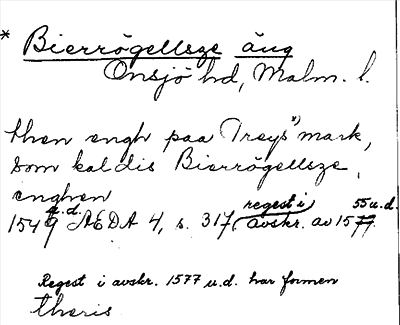 * Bierrögellsze äng
Onsjö hd, Malm. l.
then engh paa Treys" mark,
som kaldis Bierrögellsze,
enghen
1549 u.d. ÆDA 4, s. 317, (regest i avskr. av 1577. 55 u.d.
Regest i avskr. 1577 u.d. har formen
theris